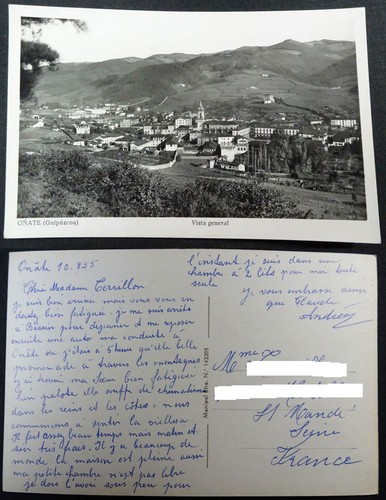 OÑATE (Guipúzcoa)
Vista general
Oñate 10.855
Chère Madame Terrillon
Je suis bien arrivée mais vous vous en
doutez bien fatiguée. je me suis arrêtée
à pour déjeuner et me reposer
ensuite une auto m'a conduite à
Oñate où j'étais à 5 heures qu'elle belle
promenade à travers les montagnes
j'ai trouvé ma sœur bien fatiguée
elle souffre de rhumatisme
dans les reins et les côtes. nous
commençons à sentir la vieillesse
Il fait assez beau temps mais matin et
soir très frais. Il y a beaucoup de
monde la maison est pleine aussi
ma petite chambre n'est pas libre
je dois l'avoir sous peu pour
l'instant je suis dans une
chambre à 2 lits pour moi toute
seule
je vous embrasse ainsi
que Claude
Andrée
Mme
St Mandé
Seine
France